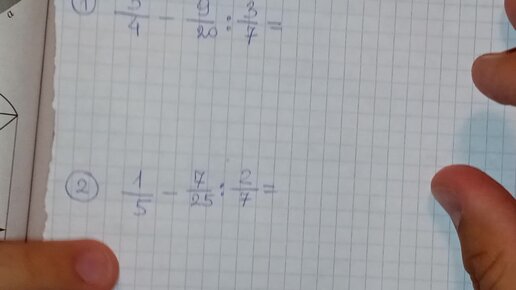 ① 3/4 - 9/20 : 3/7 =
② 1/5 - 7/25 : 2/7 =